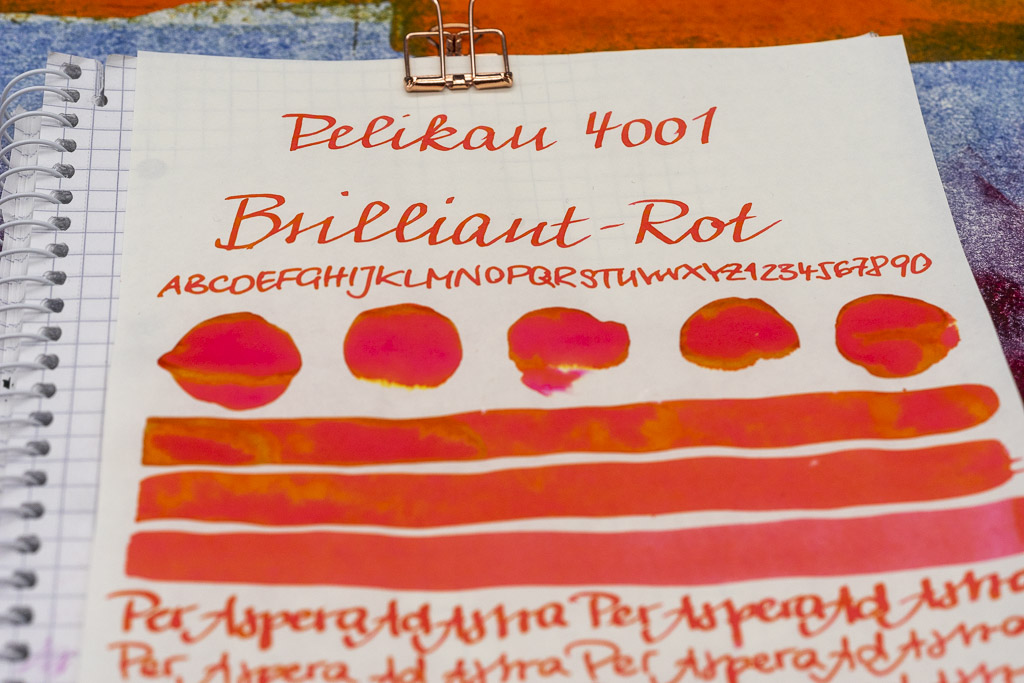 Pelikan 4001
Brilliant-Rot
ABCDEFGHIJKLMNOPQRSTUVWXYZ1234567890
Per Aspera Ad Astra Per Aspera Ad Astra
Per Aspera Ad Astra Per Aspera Ad Astra